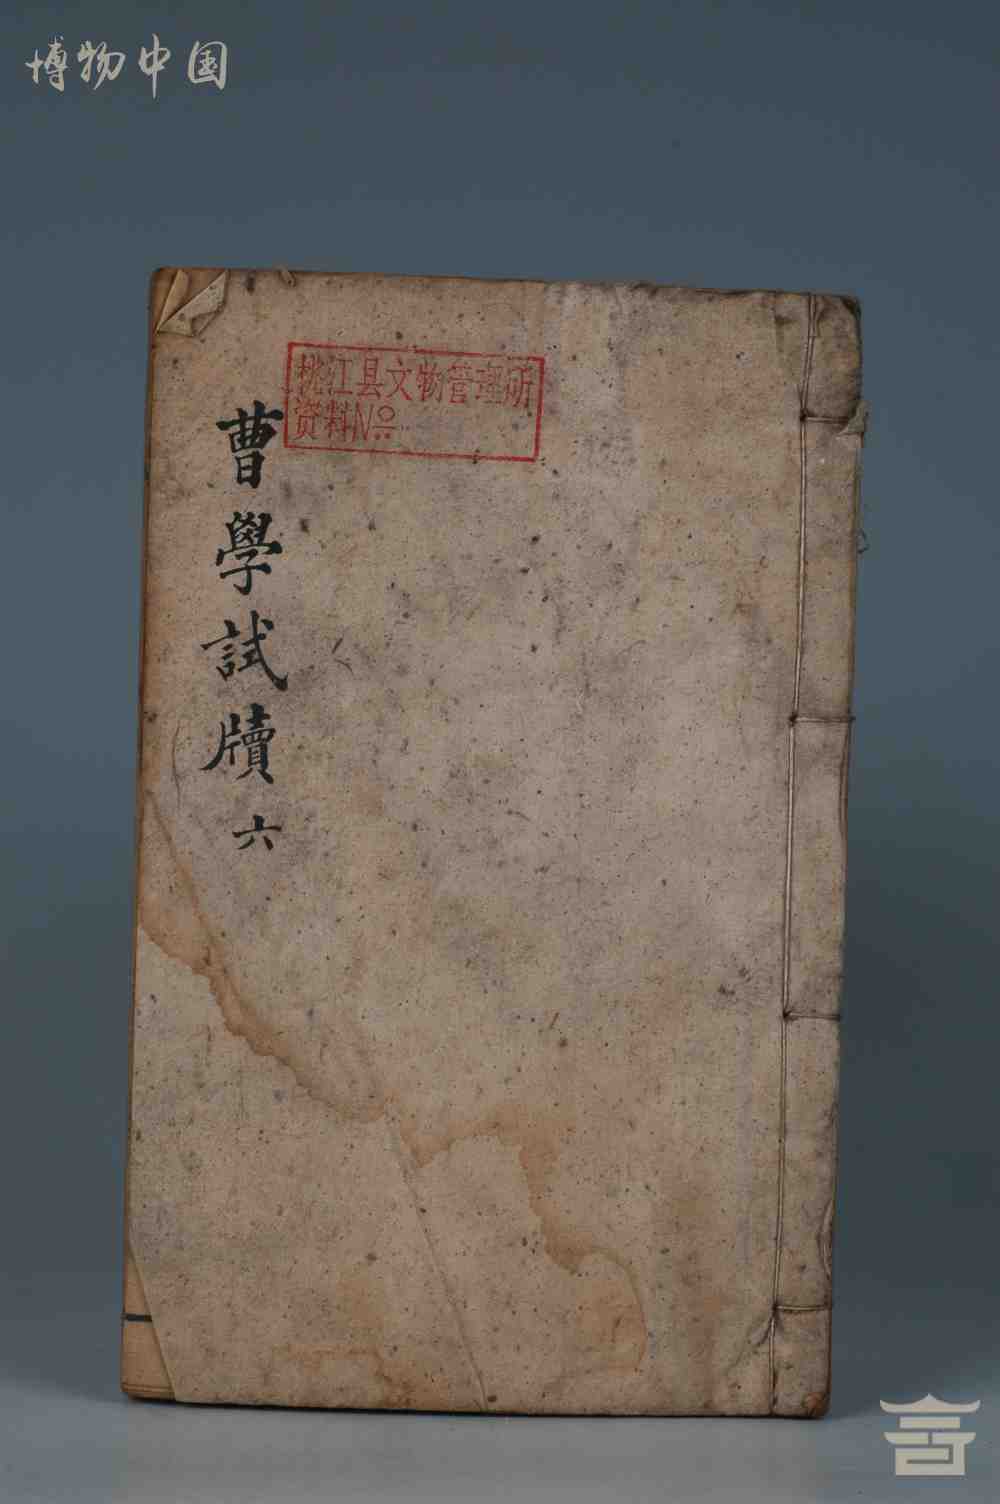 博物中国
桃江县文物管理所
资料№
曹學試牘 六